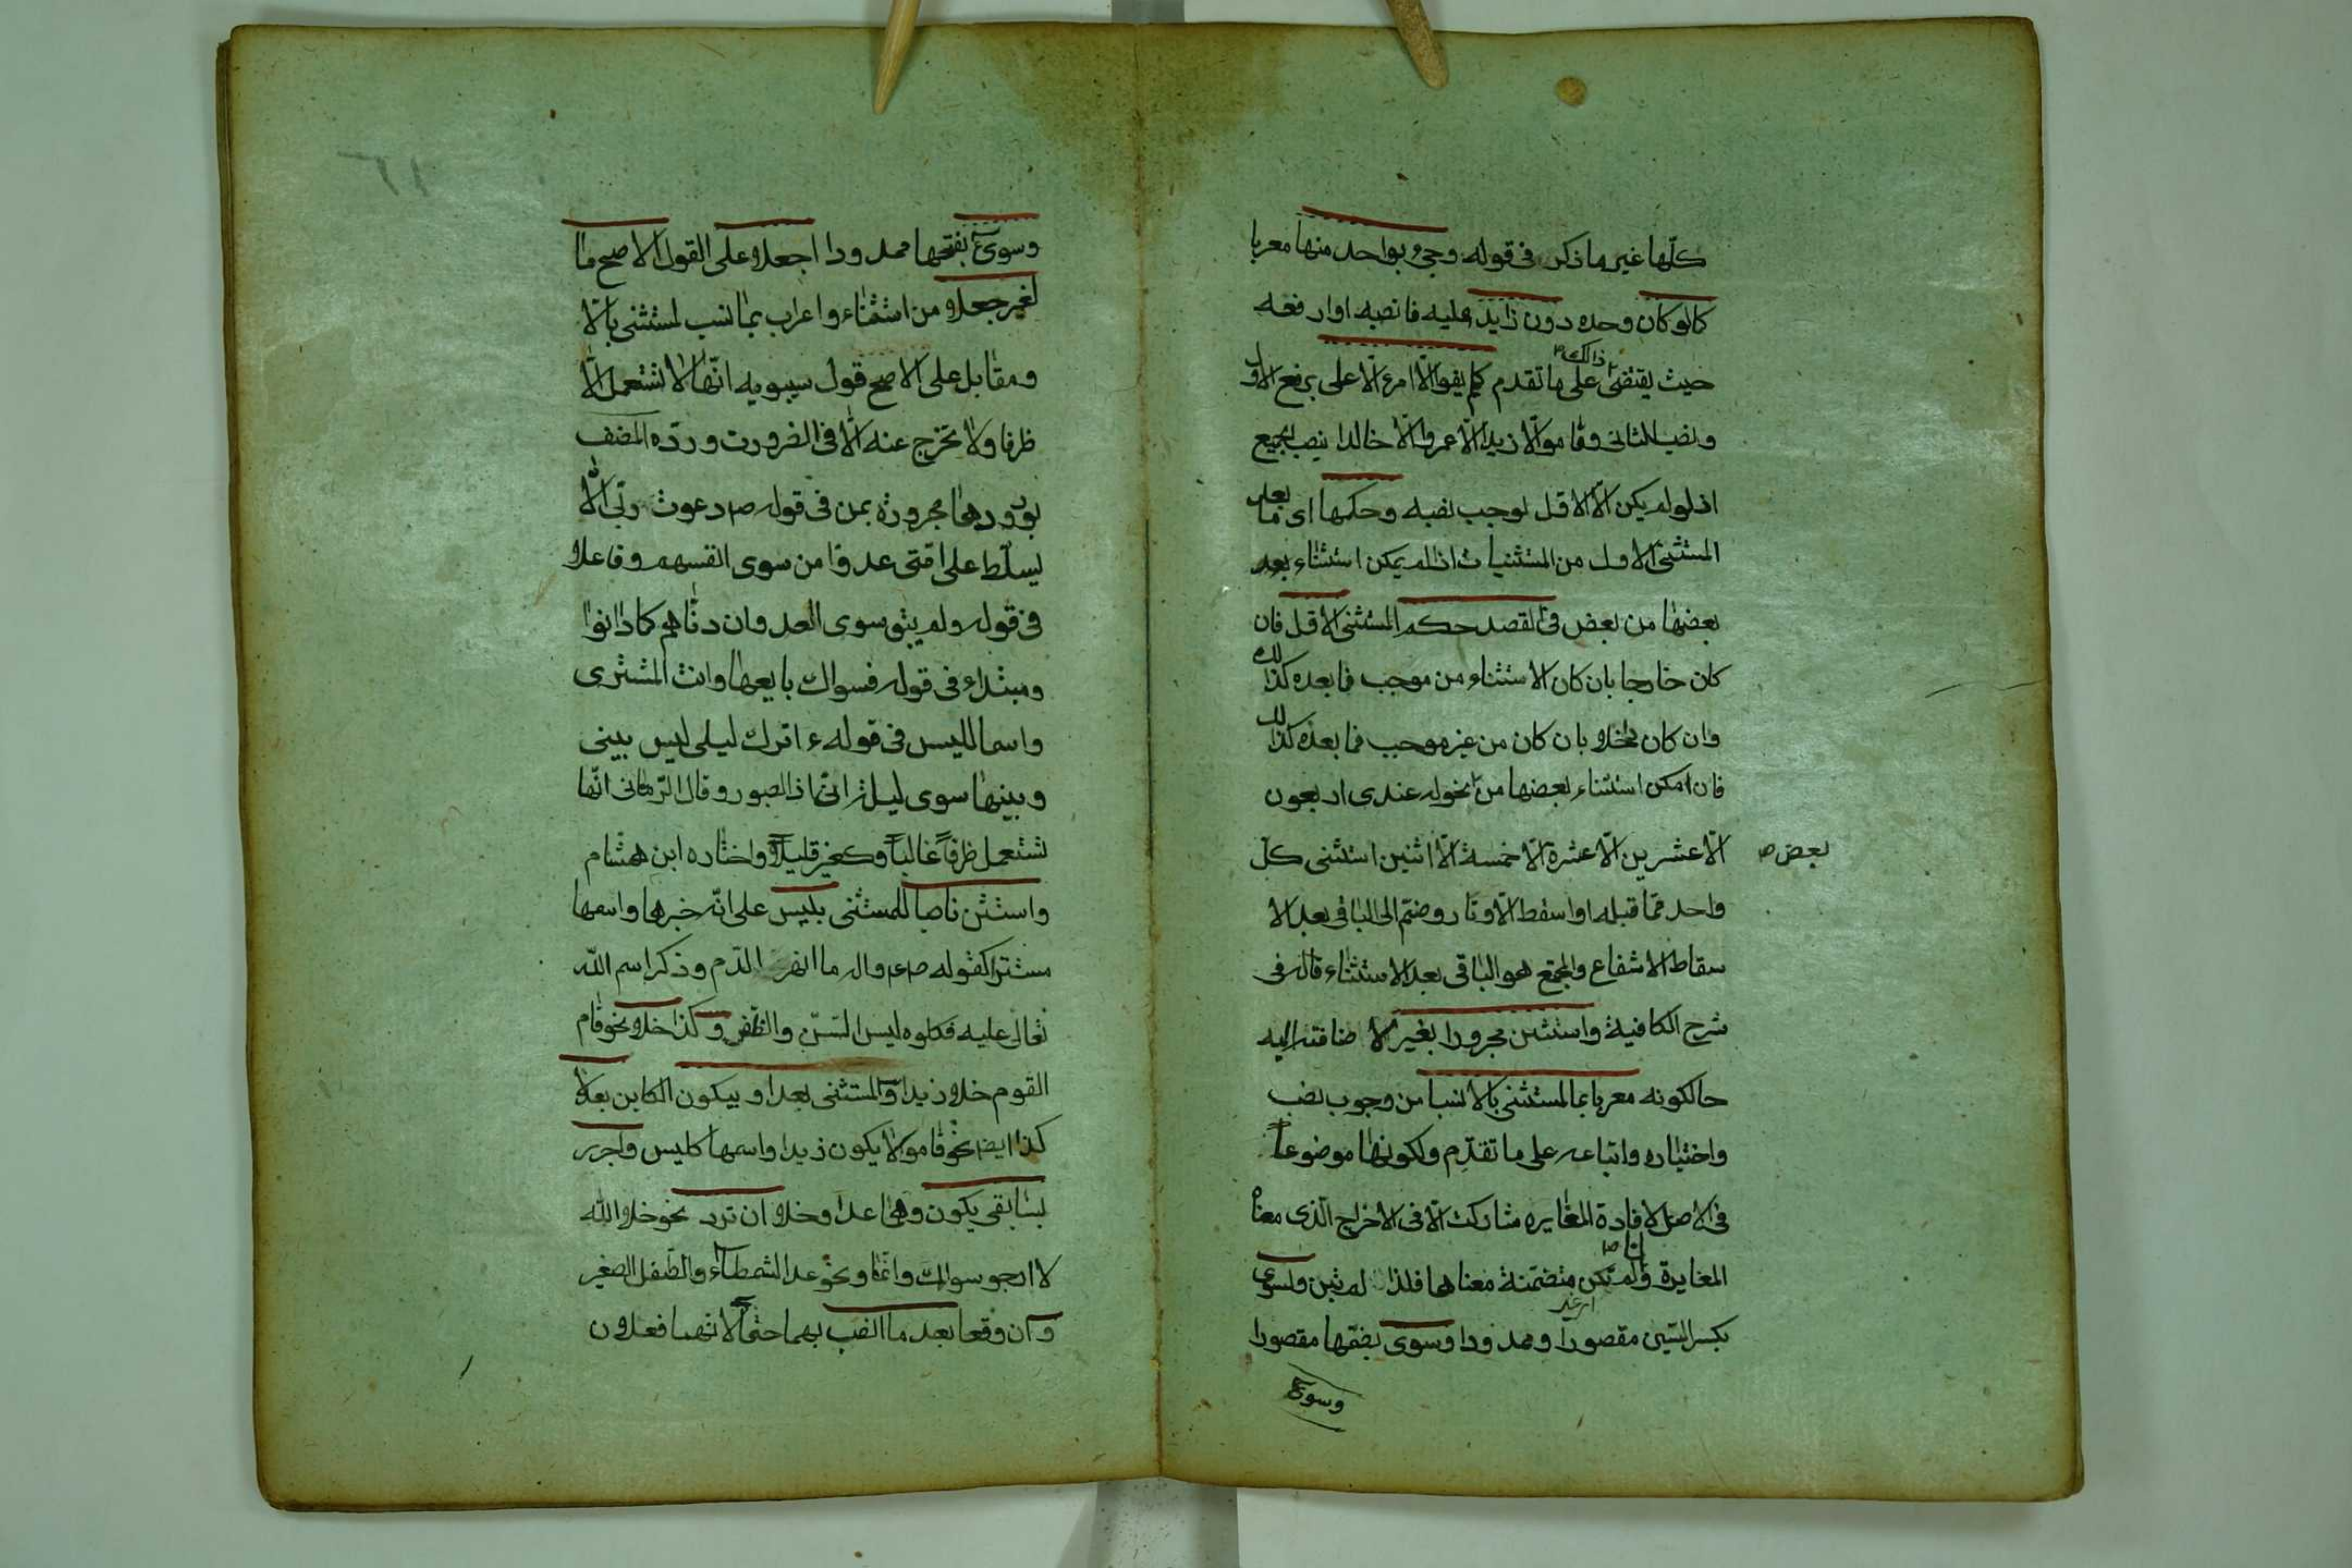 كلّها غير ما ذكر فى قوله وجئ بواحد منها معربا
كما لو كان وحده دون زايد عليه فانصبه او ارفعه
حيث يقتضى ذالك على ما تقدم كلم يفوا الّا امرء الّا على برفع الاول
ونصب الثانى وقاموا الّا زيدا الّا عمروا الّا خالدا بنصب الجميع
اذ لو لم يكن الّا الاقل لوجب نصبه وحكمها اى ما بعد
المستثنى الاول من المستثنيات اذا لم يمكن استثناء
بعضها من بعض فى القصد حكم المستثنى الاول فان
كان خارجا بان كان الاستثناء من موجب فما بعده كذلك
وان كان داخلا بان كان من غير موجب فما بعده كذلك
فان امكن استثناء بعضها من بعض نحو له عندى اربعون
الّا عشرين الّا عشرة الّا خمسة الّا اثنين استثنى كلّ
واحد ممّا قبله او اسقط الاوتار وضمّ الى الباقى بعد الا
سقاط الاشفاع والمجتمع هو الباقى بعد الاستثناء قاله فى
شرح الكافية واستثن مجرورا بغير لاضافته اليه
حالكونه معربا بما لمستثنى بالا نسبا من وجوب نصب
واختياره واتباعه على ما تقدّم ولكونها موضوعا
فى الاصل لافادة المغايره مشاركت الّا فى الاخراج الّذى معناه
المغايرة وان لم تكن متضمنة معناها فلذا لم تبن ولسوى
بكسر السّين مقصورا وممدودا وسوى بضمّها مقصورا
وسوى
وسوى بفتحها ممدودا اجعلا على القول الاصح ما
لغير جعلا من استثناء واعراب بما نسب لمستثنى بالّا
ومقابل على الاصح قول سيبويه انّها لا تستعمل الّا
ظرفا ولا تخرج عنه الّا فى الضرورت وردّه المصنف
بورودها مجرورة بمن فى قوله ص دعوت ربّى الّا
يسلّط على امّتى عدوّا من سوى انفسهم وفاعلا
فى قوله ولم يبق سوى العدوان دنّاهم كما دانوا
ومبتداء فى قوله فسواك بايعها وانت المشترى
واسما لليس فى قوله ء اترك ليلى ليس بينى
وبينها سوى ليلة انّى اذا لصبور وقال الرّمّانى انّها
تستعمل ظرفاً غالباً وكغير قليلاً واختاره ابن هشام
واستثن ناصبا للمستثنى بليس على انّه خبرها واسمها
مستتر كقوله ص واله ما انهر الدّم وذكر اسم اللّه
تعالى عليه فكلوه ليس السّنّ والظّفر وكذا خلا نحو قام
القوم خلا زيدا والمستثنى بعدا وبيكون الكاين بعد لا
كذا ايضا نحو قاموا لا يكون زيدا واسمها كليس واجرر
بسابقى يكون وهما عدا وخلا ان ترد نحو خلا اللّه
لا ارجو سواك وانّما ونحو عدا الشمطاء والطّفل الصغير
وان وقعا بعد ما انصب بهما حتماً لانّهما فعلان